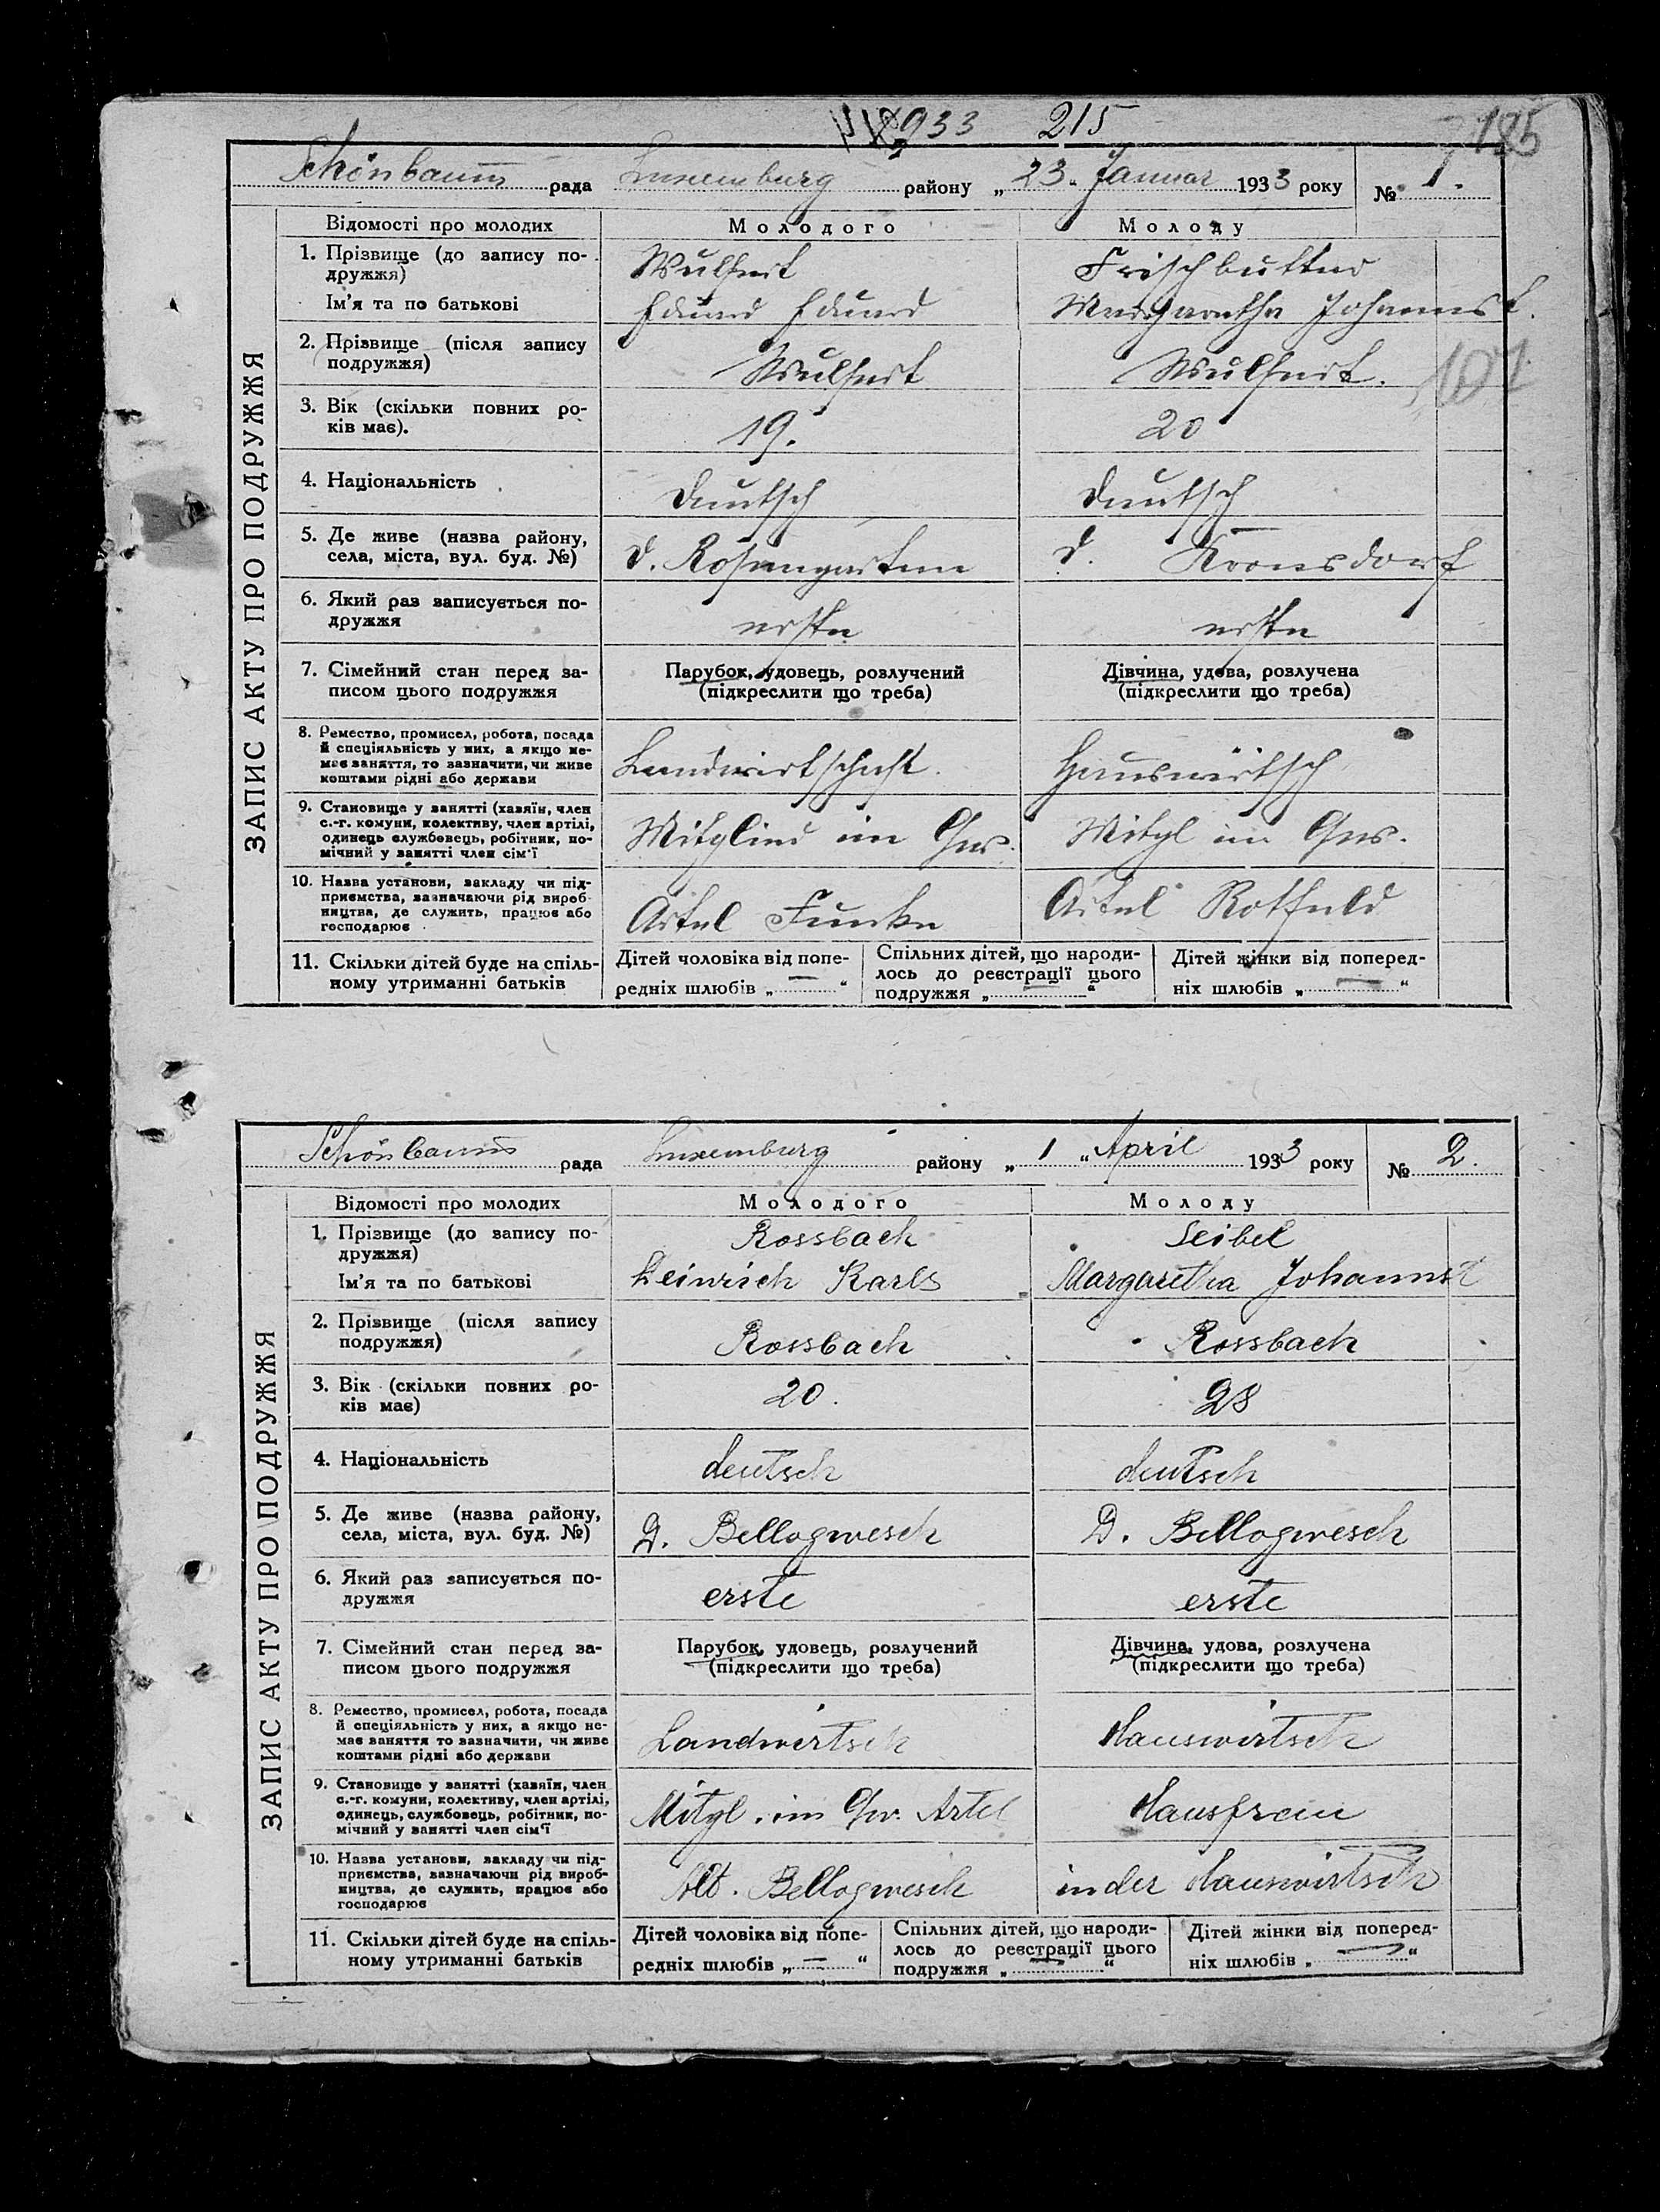 1933 215 185
Schönbaum рада Luxemburg району „ 23 “ Januar 1933 року № 1.
ЗАПИС АКТУ ПРО ПОДРУЖЖЯ
Відомості про молодих Молодого Молоду
1. Прізвище (до запису по-
дружжя)
Wulfert Frischbutter
Ім’я та по батькові Eduard Eduard Margaretha Johannest.
2. Прізвище (після запису
подружжя)
Wulfert Wulfert.
107
3. Вік (скільки повних ро-
ків має).
19. 20
4. Національність deutsch deutsch
5. Де живе (назва району,
села, міста, вул. буд. №)
d. Rosengarten d. Kronsdorf
6. Який раз записується по-
дружжя
erste erste
7. Сімейний стан перед за-
писом цього подружжя
Парубок, удовець, розлучений
(підкреслити що треба)
Дівчина, удова, розлучена
(підкреслити що треба)
8. Ремество, промисел, робота, посада
й спеціяльність у них, а якщо не-
має заняття, то зазначити, чи живе
коштами рідні або держави
Landwirtschaft. Hauswirtsch
9. Становище у занятті (хазяїн, член
с.-г. комуни, колективу, член артілі,
одинець службовець, робітник, по-
мічний у занятті член сім’ї
Mitglied im Gew. Mitgl im Gew.
10. Назва установи, закладу чи під-
приємства, зазначаючи рід вироб-
ництва, де служить, працює або
господарює
Artel Funke Artel Rotfeld
11. Скільки дітей буде на спіль-
ному утриманні батьків
Дітей чоловіка від попе-
редніх шлюбів „ — “
Спільних дітей, що народи-
лось до реєстрації цього
подружжя „ — “
Дітей жінки від поперед-
ніх шлюбів „ — “
Schönbaum рада Luxemburg району „ 1 “ April 1933 року № 2.
ЗАПИС АКТУ ПРО ПОДРУЖЖЯ
Відомості про молодих Молодого Молоду
1. Прізвище (до запису по-
дружжя)
Rossbach Seibel
Ім’я та по батькові Heinrich Karls Margaretha Johannst
2. Прізвище (після запису
подружжя)
Rossbach Rossbach
3. Вік (скільки повних ро-
ків має)
20. 28
4. Національність deutsch deutsch
5. Де живе (назва району,
села, міста, вул. буд. №)
D. Bellogwesch D. Bellogwesch
6. Який раз записується по-
дружжя
erste erste
7. Сімейний стан перед за-
писом цього подружжя
Парубок, удовець, розлучений
(підкреслити що треба)
Дівчина, удова, розлучена
(підкреслити що треба)
8. Ремество, промисел, робота, посада
й спеціяльність у них, а якщо не-
має заняття то зазначити, чи живе
коштами рідні або держави
Landwirtsch Hauswirtsch
9. Становище у занятті (хазяїн, член
с.-г. комуни, колективу, член артілі,
одинець, службовець, робітник, по-
мічний у занятті член сім’ї
Mitgl. im Gw. Artel Hausfrau
10. Назва установи, закладу чи під-
приємства, зазначаючи рід вироб-
ництва, де служить, працює або
господарює
Alt. Bellogwesch in der Hauswirtsch
11. Скільки дітей буде на спіль-
ному утриманні батьків
Дітей чоловіка від попе-
редніх шлюбів „ — “
Спільних дітей, що народи-
лось до реєстрації цього
подружжя „ — “
Дітей жінки від поперед-
ніх шлюбів „ — “